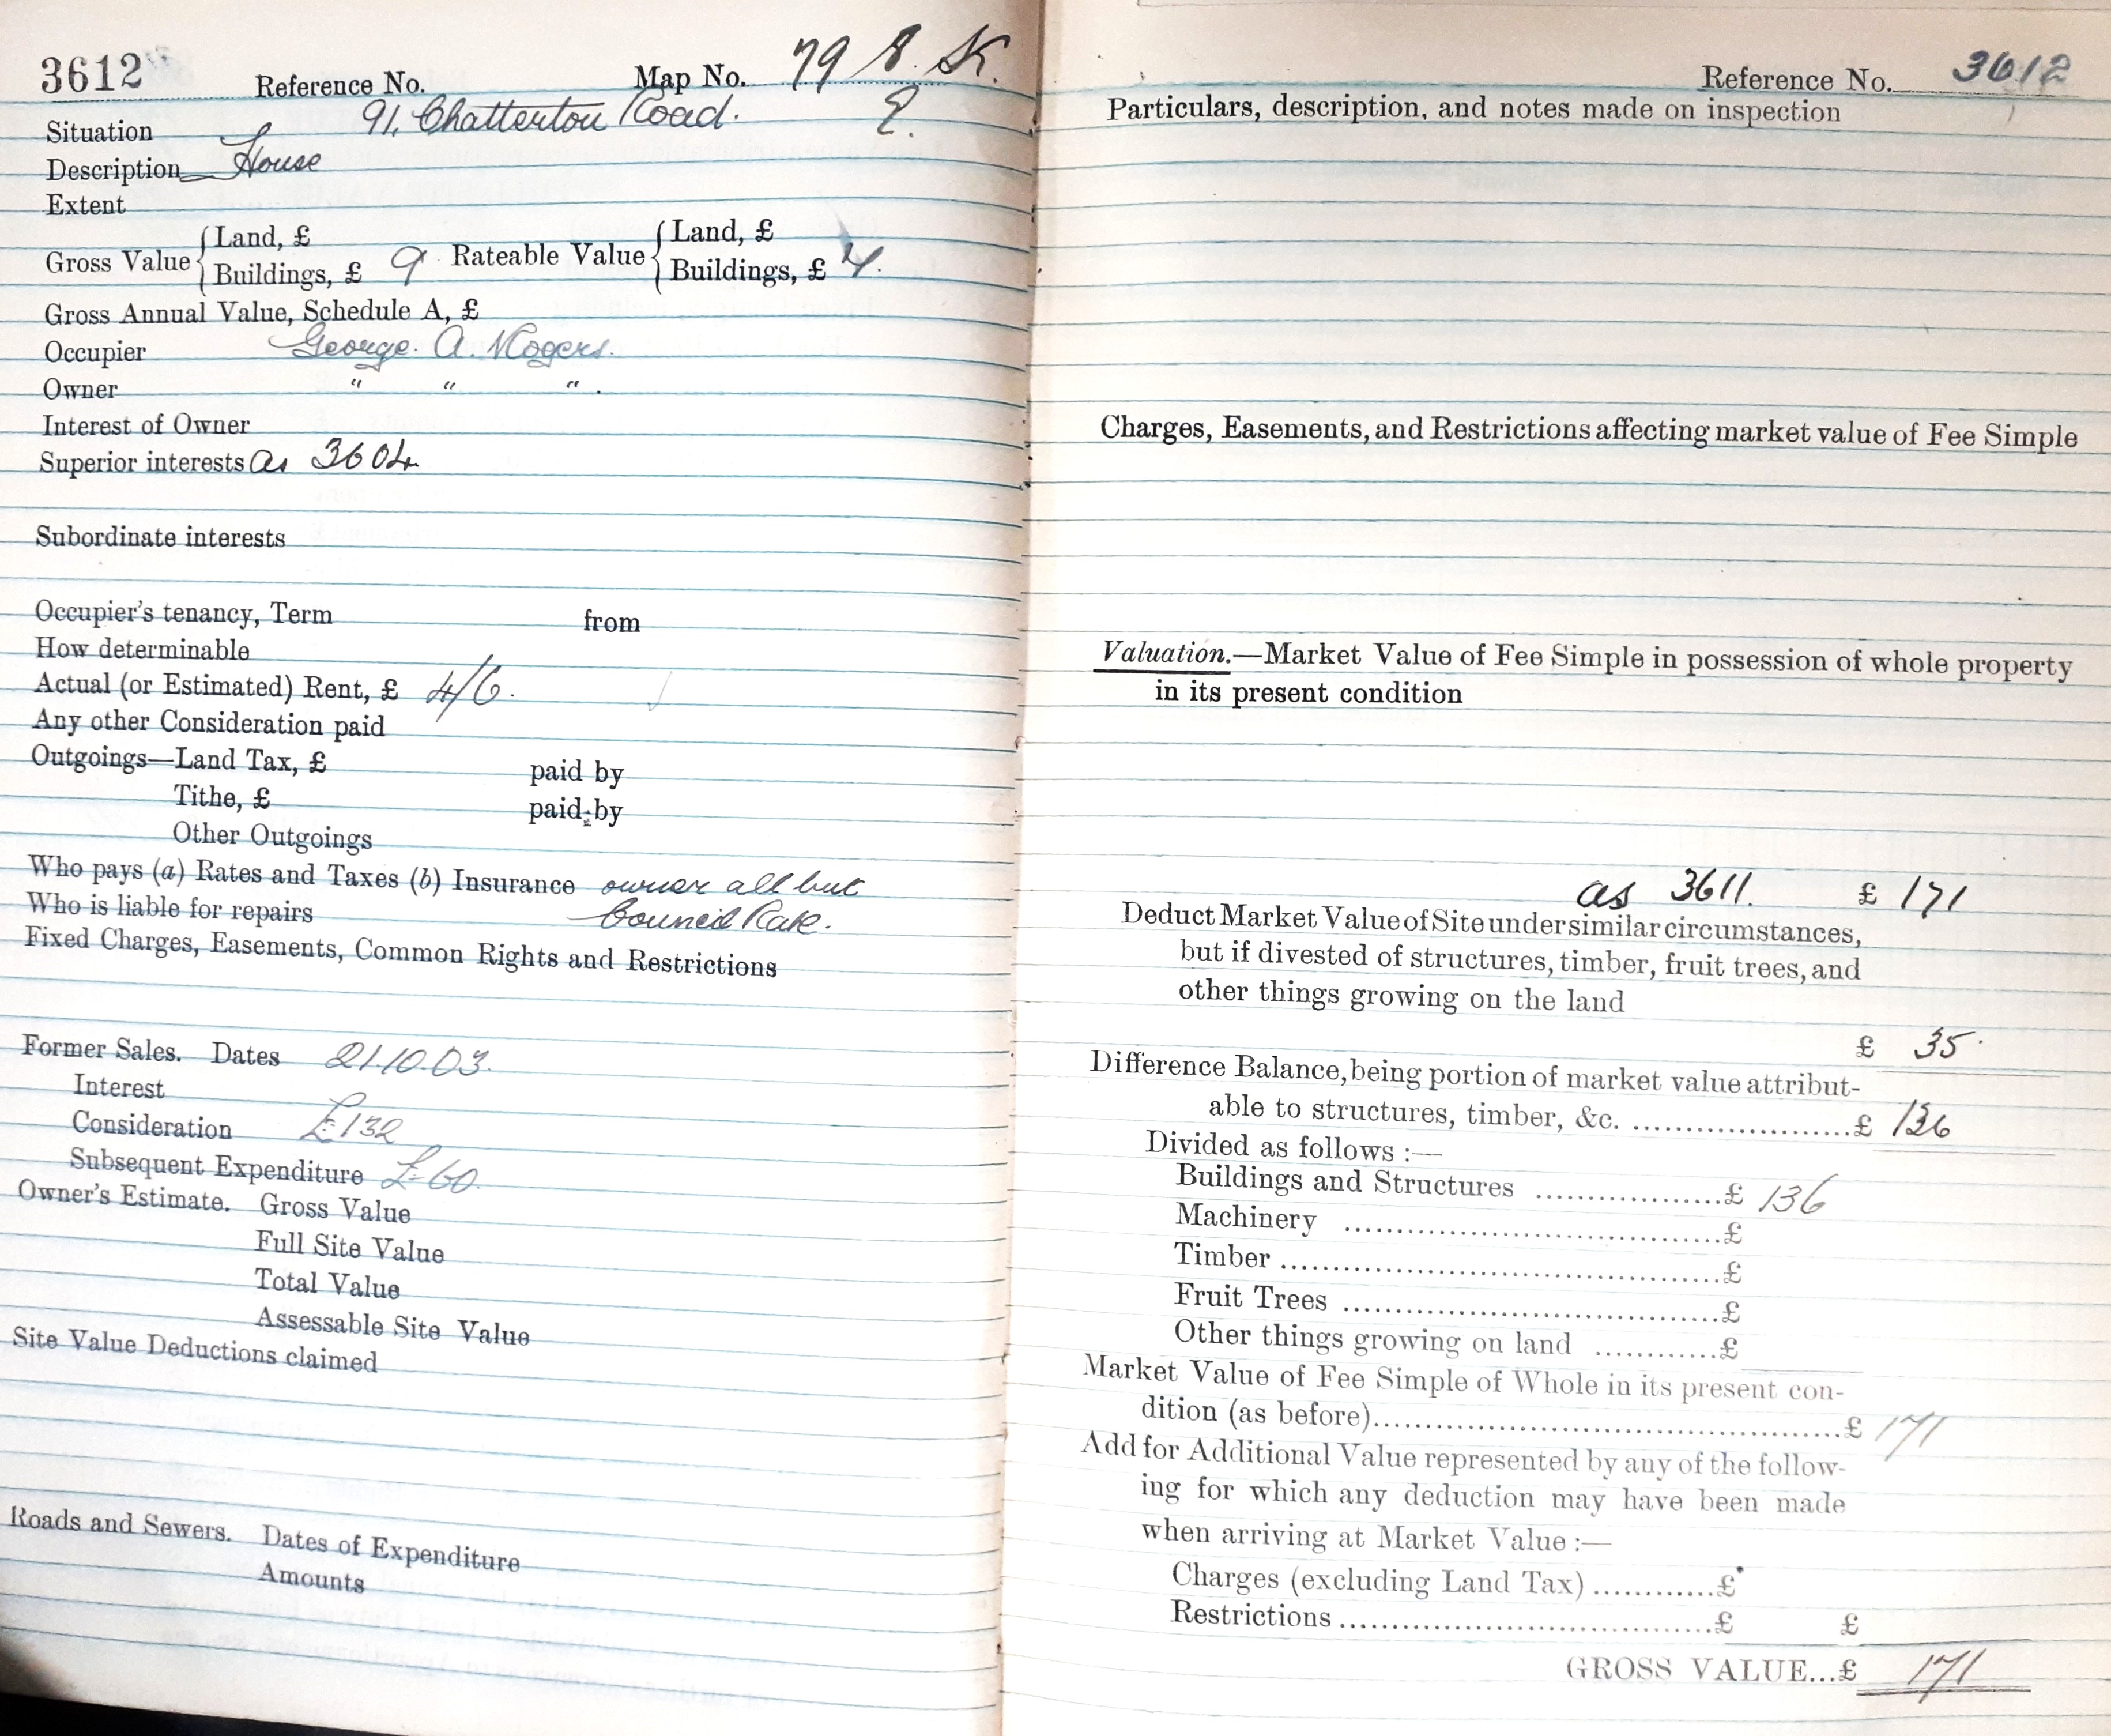 3612 Reference No. Map No. 79 8. SK.
Situation 91, Chatterton Road. 2.
Description House
Extent
Gross Value { Land, £ Rateable Value { Land, £
Buildings, £ 9 Buildings, £
Gross Annual Value, Schedule A, £
Occupier George. A. Rogers.
Owner " " " .
Interest of Owner
Superior interests as 3604
Subordinate interests
Occupier's tenancy, Term from
How determinable
Actual (or Estimated) Rent, £ 4/6.
Any other Consideration paid
Outgoings—Land Tax, £ paid by
Tithe, £ paid by
Other Outgoings
Who pays (a) Rates and Taxes (b) Insurance owner all but
Who is liable for repairs Council Rate.
Fixed Charges, Easements, Common Rights and Restrictions
Former Sales. Dates 21.10.03.
Interest
Consideration £132
Subsequent Expenditure £60.
Owner's Estimate. Gross Value
Full Site Value
Total Value
Assessable Site Value
Site Value Deductions claimed
Roads and Sewers. Dates of Expenditure
Amounts
Reference No. 3612
Particulars, description, and notes made on inspection
Charges, Easements, and Restrictions affecting market value of Fee Simple
Valuation.—Market Value of Fee Simple in possession of whole property
in its present condition
as 3611. £ 171
Deduct Market Value of Site under similar circumstances,
but if divested of structures, timber, fruit trees, and
other things growing on the land
£ 35
Difference Balance, being portion of market value attribut-
able to structures, timber, &c. ..................... £ 136
Divided as follows :—
Buildings and Structures ..................£ 136
Machinery ..................£
Timber ..................£
Fruit Trees ..................£
Other things growing on land ............£
Market Value of Fee Simple of Whole in its present con-
dition (as before)..................£ 171
Add for Additional Value represented by any of the follow-
ing for which any deduction may have been made
when arriving at Market Value :—
Charges (excluding Land Tax) ............£
Restrictions ..................£ £
GROSS VALUE...£ 171